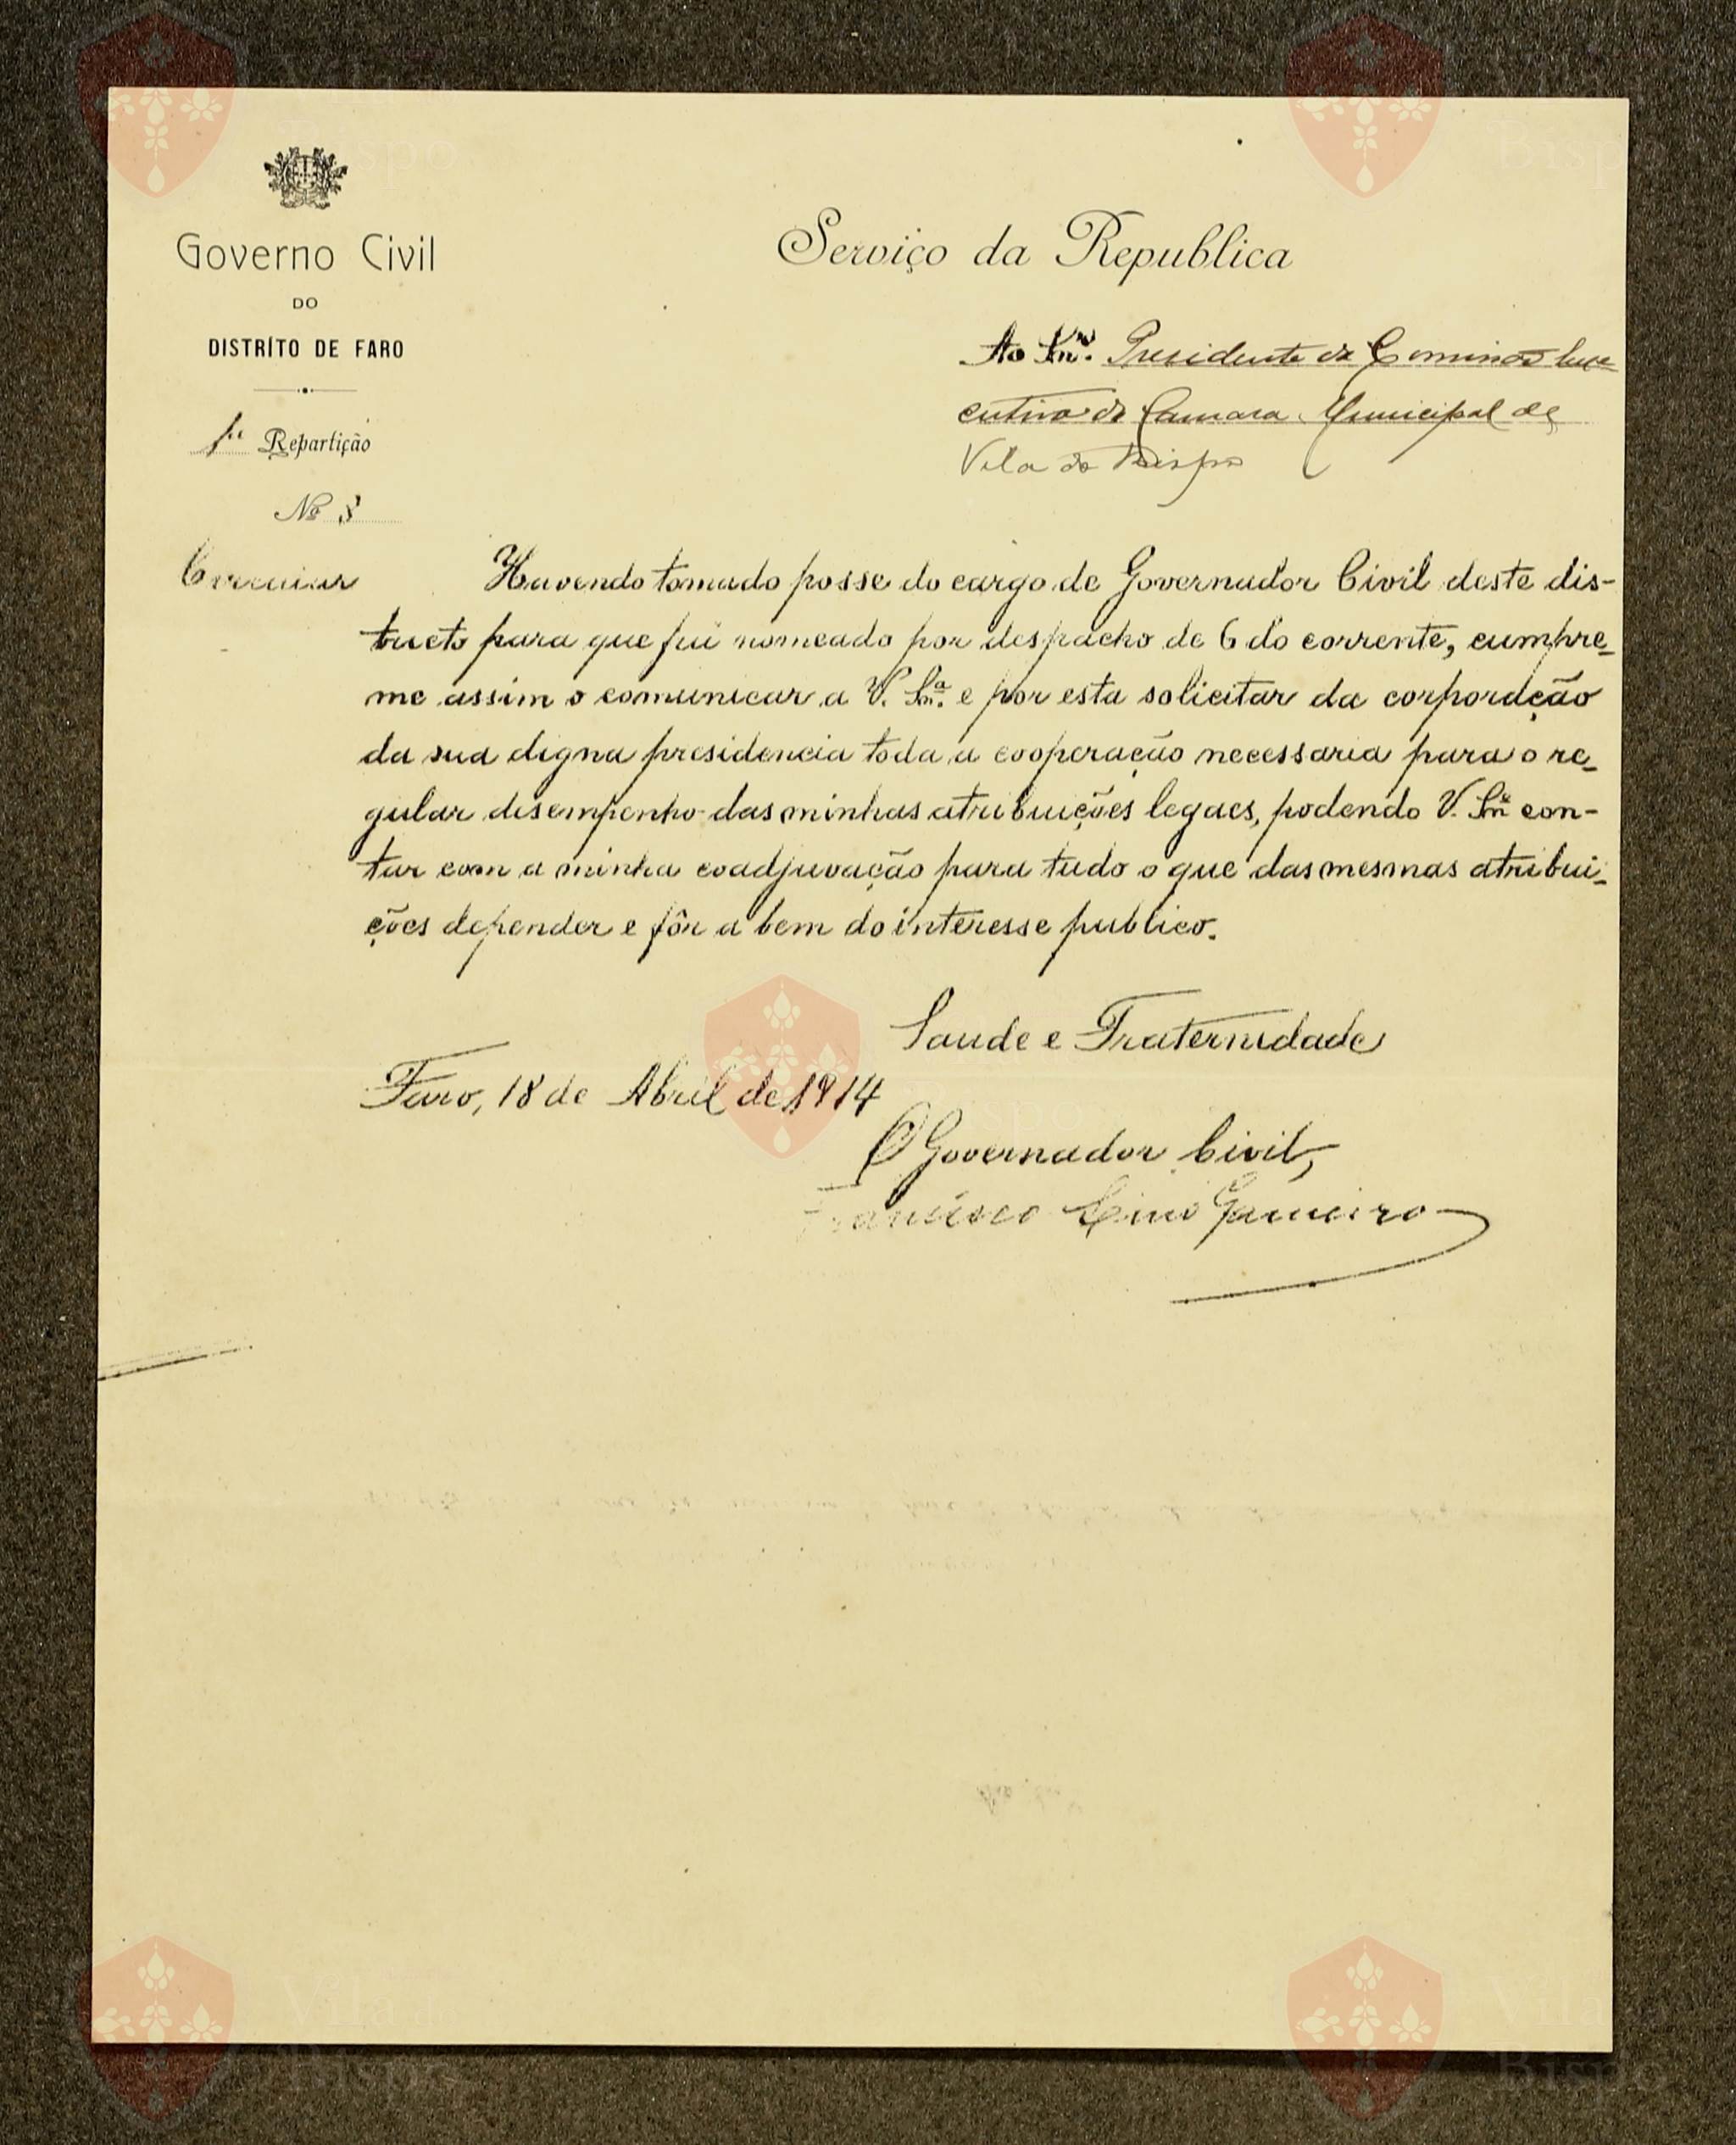 Governo Civil
DO
DISTRÍTO DE FARO
1ª Repartição
Nº 3
Circular
Serviço da Republica
Ao Snr. Presidente da Comissão Exe
cutiva da Camara Municipal de
Vila do Bispo
Havendo tomado posse do cargo de Governador Civil deste dis-
tricto para que fui nomeado por despacho de 6 do corrente, cumpre-
me assim o comunicar a V. Sª. e por esta solicitar da corporação
da sua digna presidencia toda a cooperação necessaria para o re-
gular desempenho das minhas atribuições legaes, podendo V. Sª con-
tar com a minha coadjuvação para tudo o que das mesmas atribui-
ções depender e fôr a bem do interesse publico.
Saude e Fraternidade
Faro, 18 de Abril de 1914
O Governador Civil,
Francisco Lino Gameiro
Vila do
Bispo